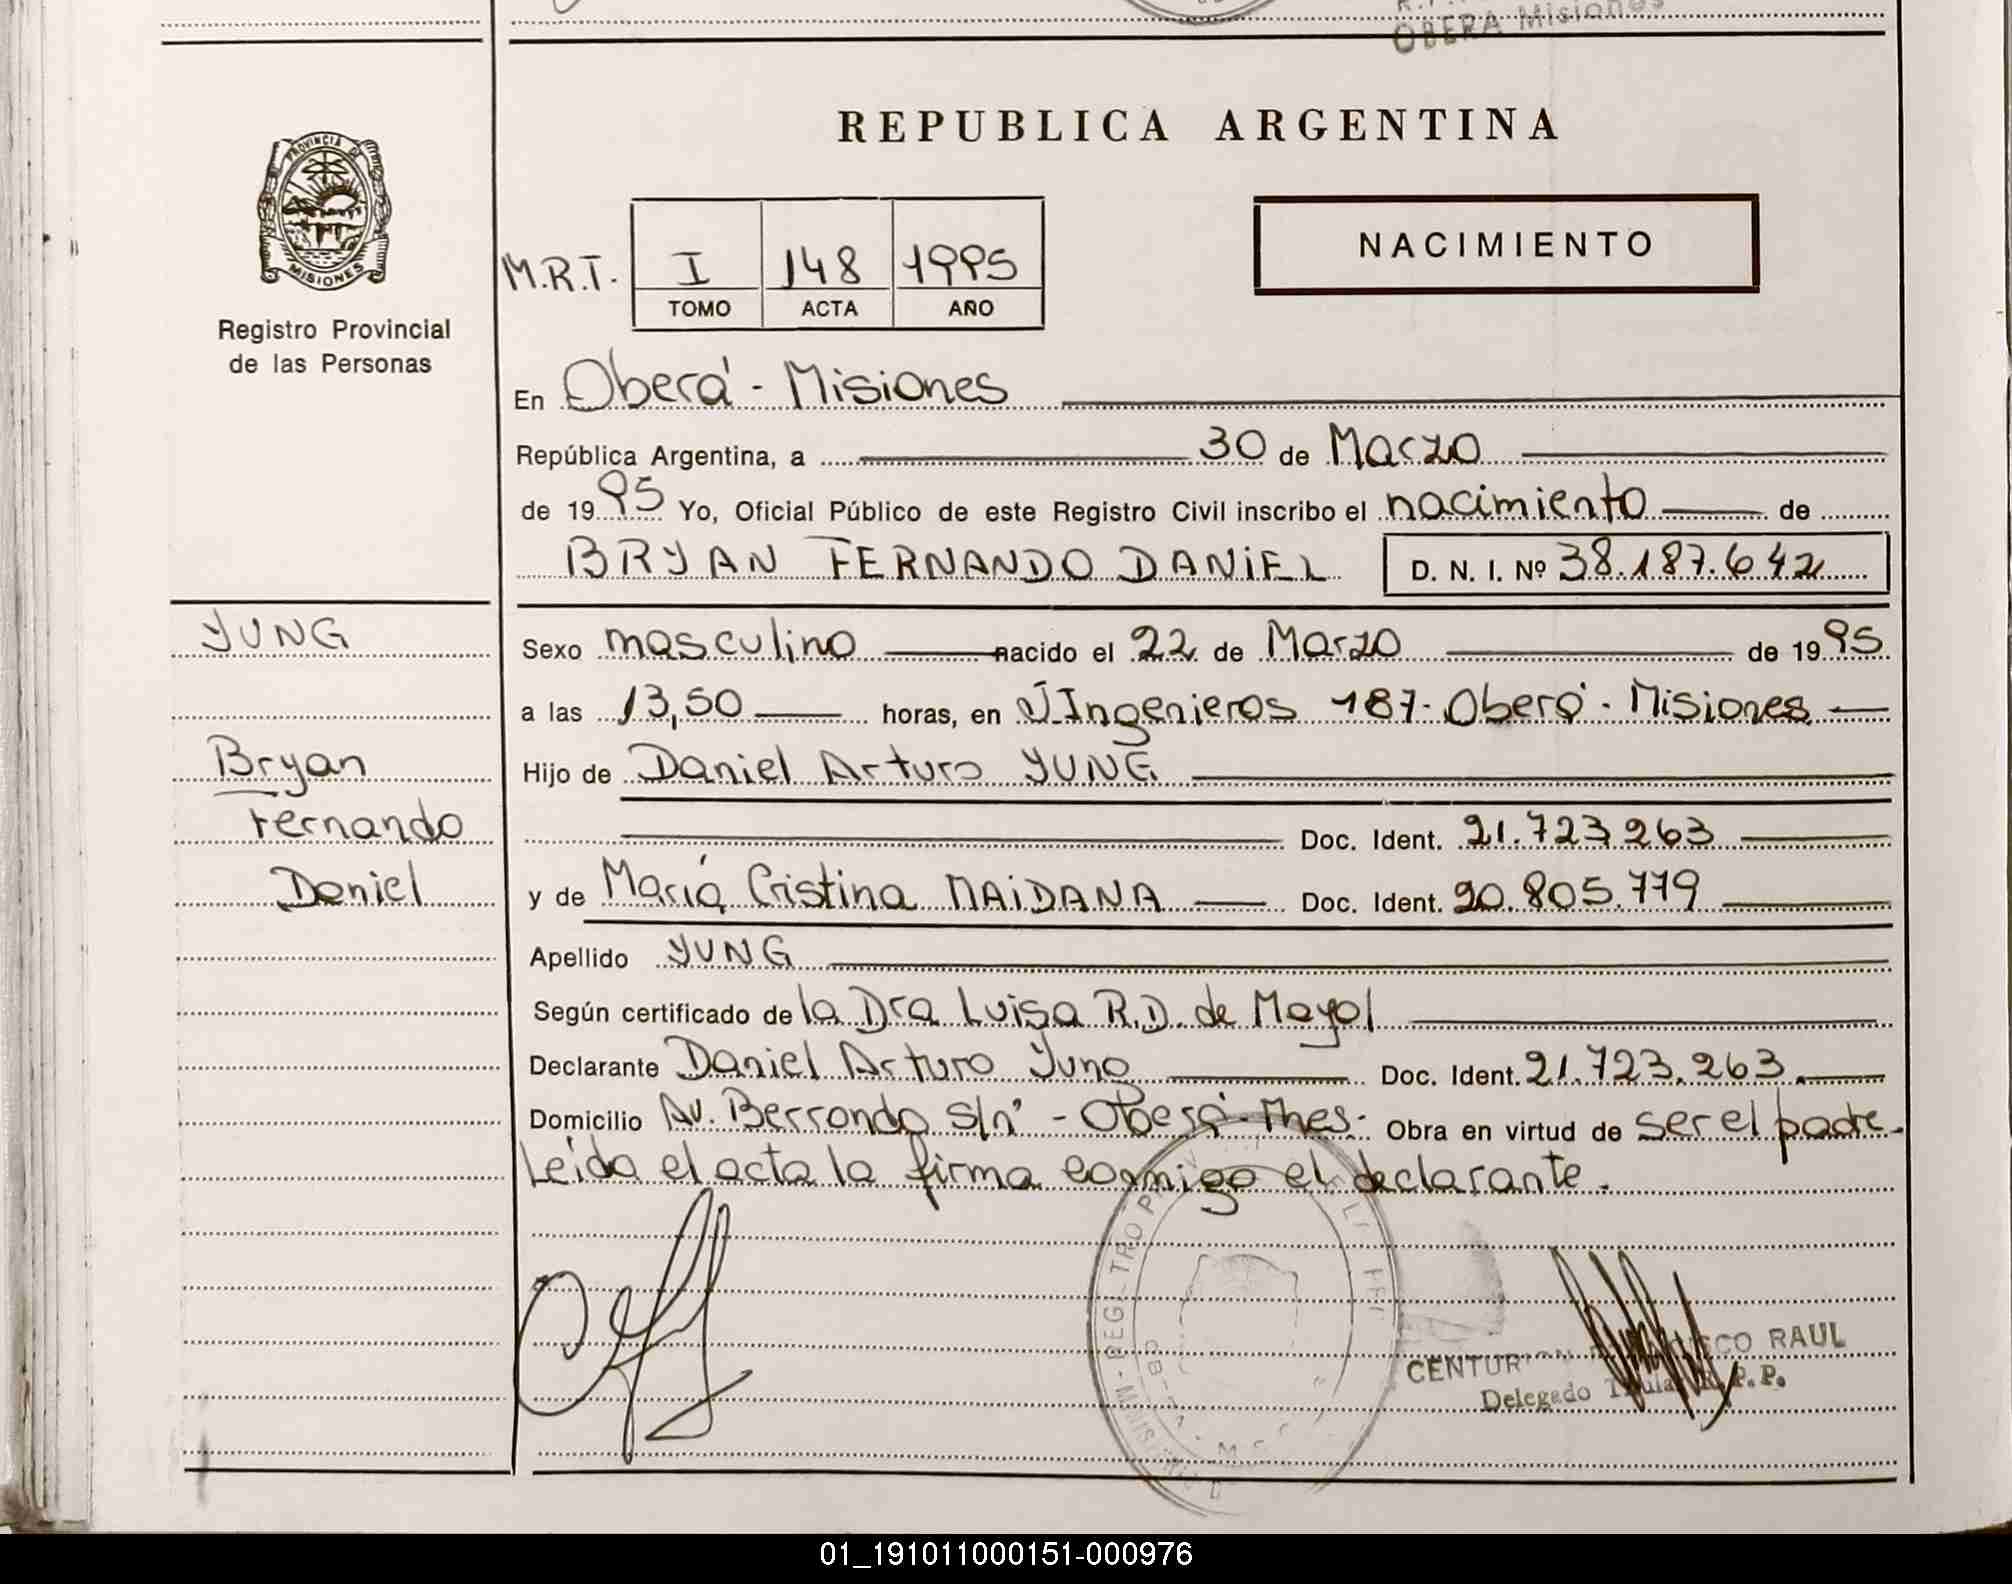 OBERA Misiones
PROVINCIA DE
MISIONES
Registro Provincial
de las Personas
REPUBLICA ARGENTINA
NACIMIENTO
M.R.T. I 148 1995
TOMO ACTA AÑO
En Oberá - Misiones
República Argentina, a 30 de Marzo
de 1995 Yo, Oficial Público de este Registro Civil inscribo el nacimiento de
BRYAN FERNANDO DANIEL D. N. I. Nº 38.187.642
YUNG
Bryan
Fernando
Daniel
Sexo masculino nacido el 22 de Marzo de 1995
a las 13,50 horas, en J.Ingenieros 187- Oberá - Misiones
Hijo de Daniel Arturo YUNG
Doc. Ident. 21.723.263
y de María Cristina MAIDANA Doc. Ident. 20.805.779
Apellido YUNG
Según certificado de la Dra Luisa R.D. de Mayol
Declarante Daniel Arturo Yung Doc. Ident. 21.723.263
Domicilio Av. Berrondo s/nº - Oberá - Mnes - Obra en virtud de ser el padre.
Leída el acta la firma conmigo el declarante.
CENTURION RAUL
Delegado Titular R. P. P.
01_191011000151-000976